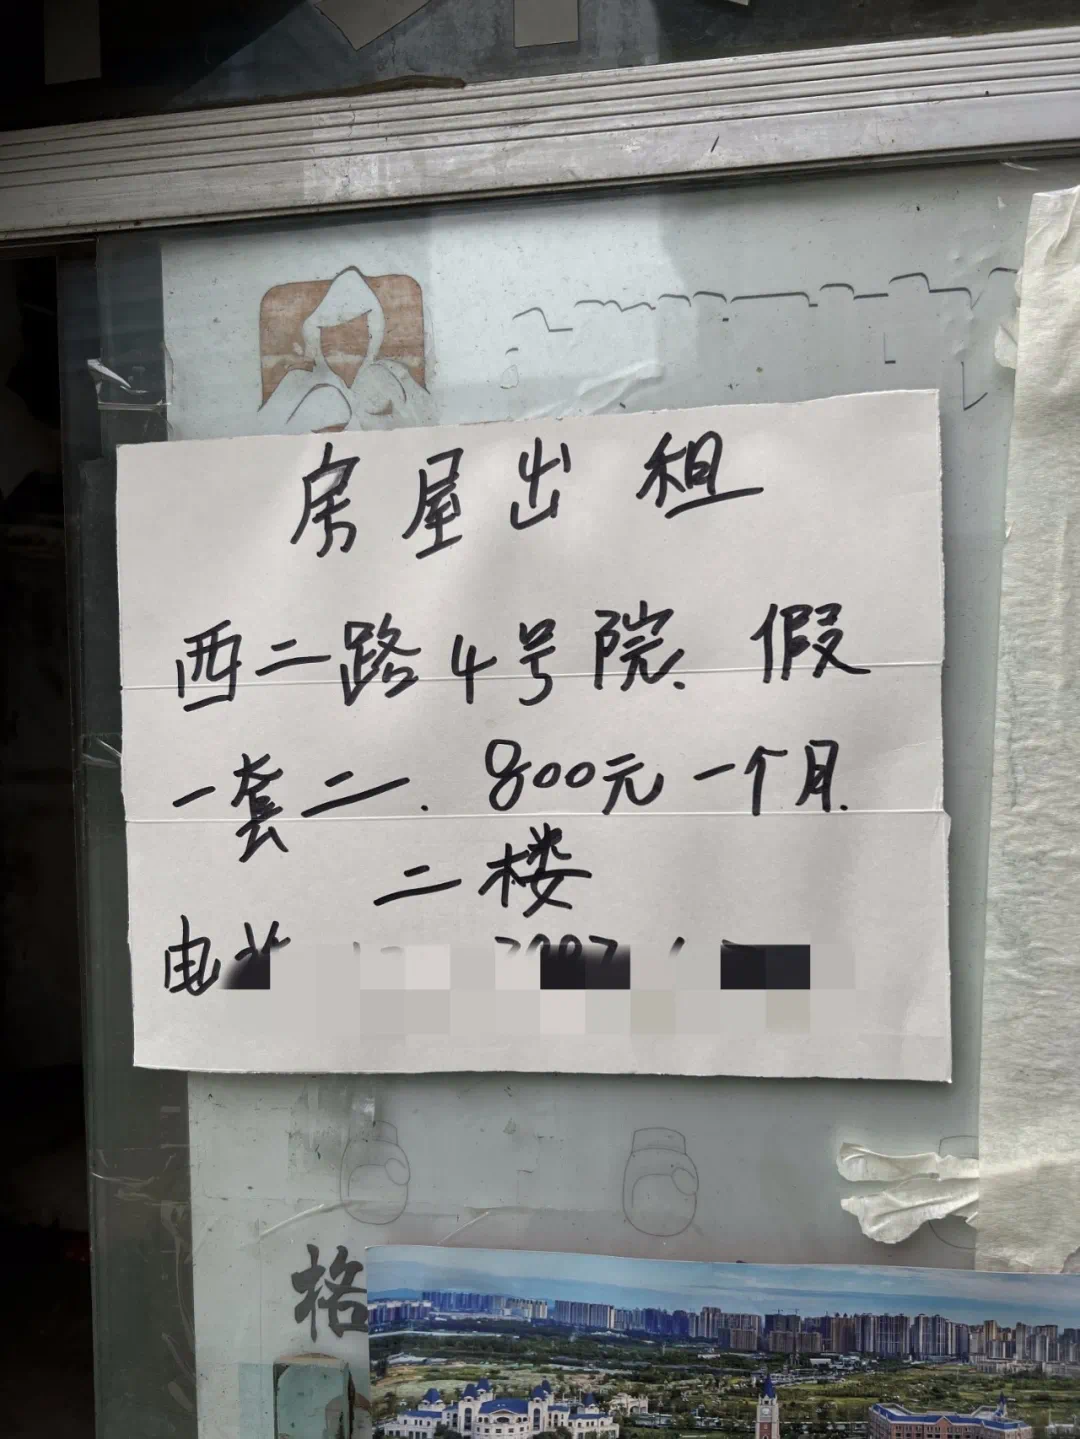 房屋出租
西二路4号院、假
一套二. 800元一个月.
二楼
电
格